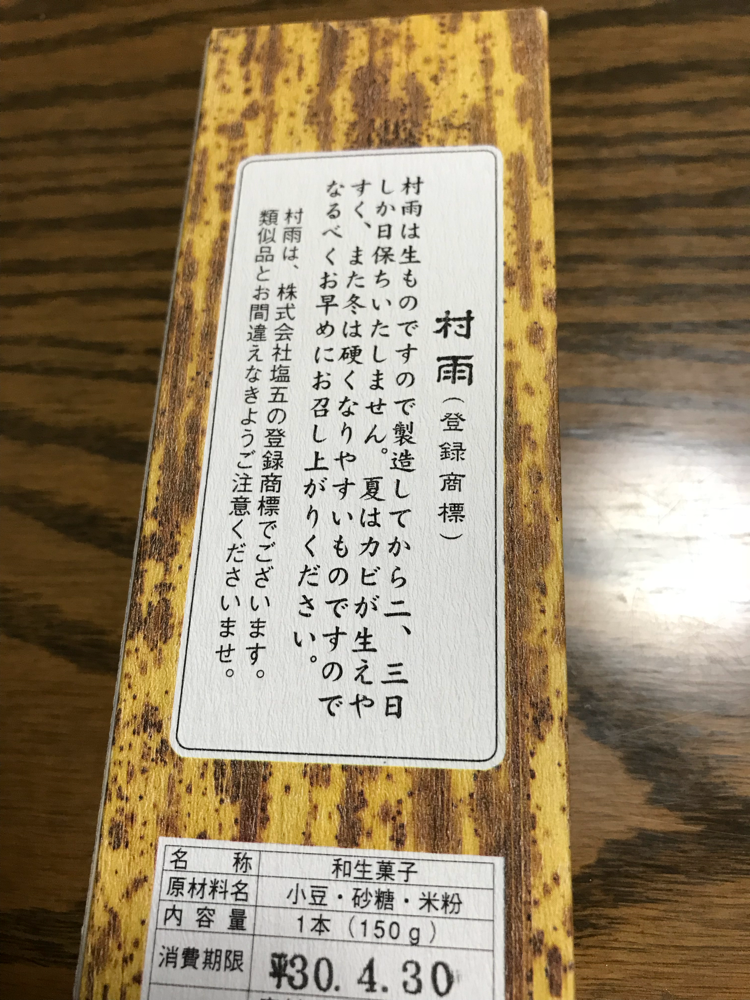 村雨(登録商標)
村雨は生ものですので製造してから二、三日
しか日保ちいたしません。夏はカビが生えや
すく、また冬は硬くなりやすいものですので
なるべくお早めにお召し上がりください。
村雨は、株式会社塩五の登録商標でございます。
類似品とお間違えなきようご注意くださいませ。
名称 和生菓子
原材料名 小豆・砂糖・米粉
内容量 1本(150g)
消費期限 平30.4.30